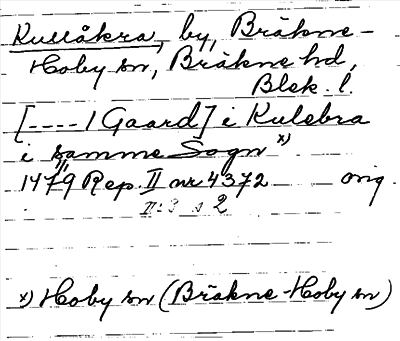 Kullåkra, by, Bräkne-
Hoby sn, Bräkne hd,
Blek. l.
[---- 1 Gaard] i Kulebra
i samme Sogn x)
14 11/9 Rep. II nr 4372 orig.
II:3 s 2
x) Hoby sn (Bräkne-Hoby sn)